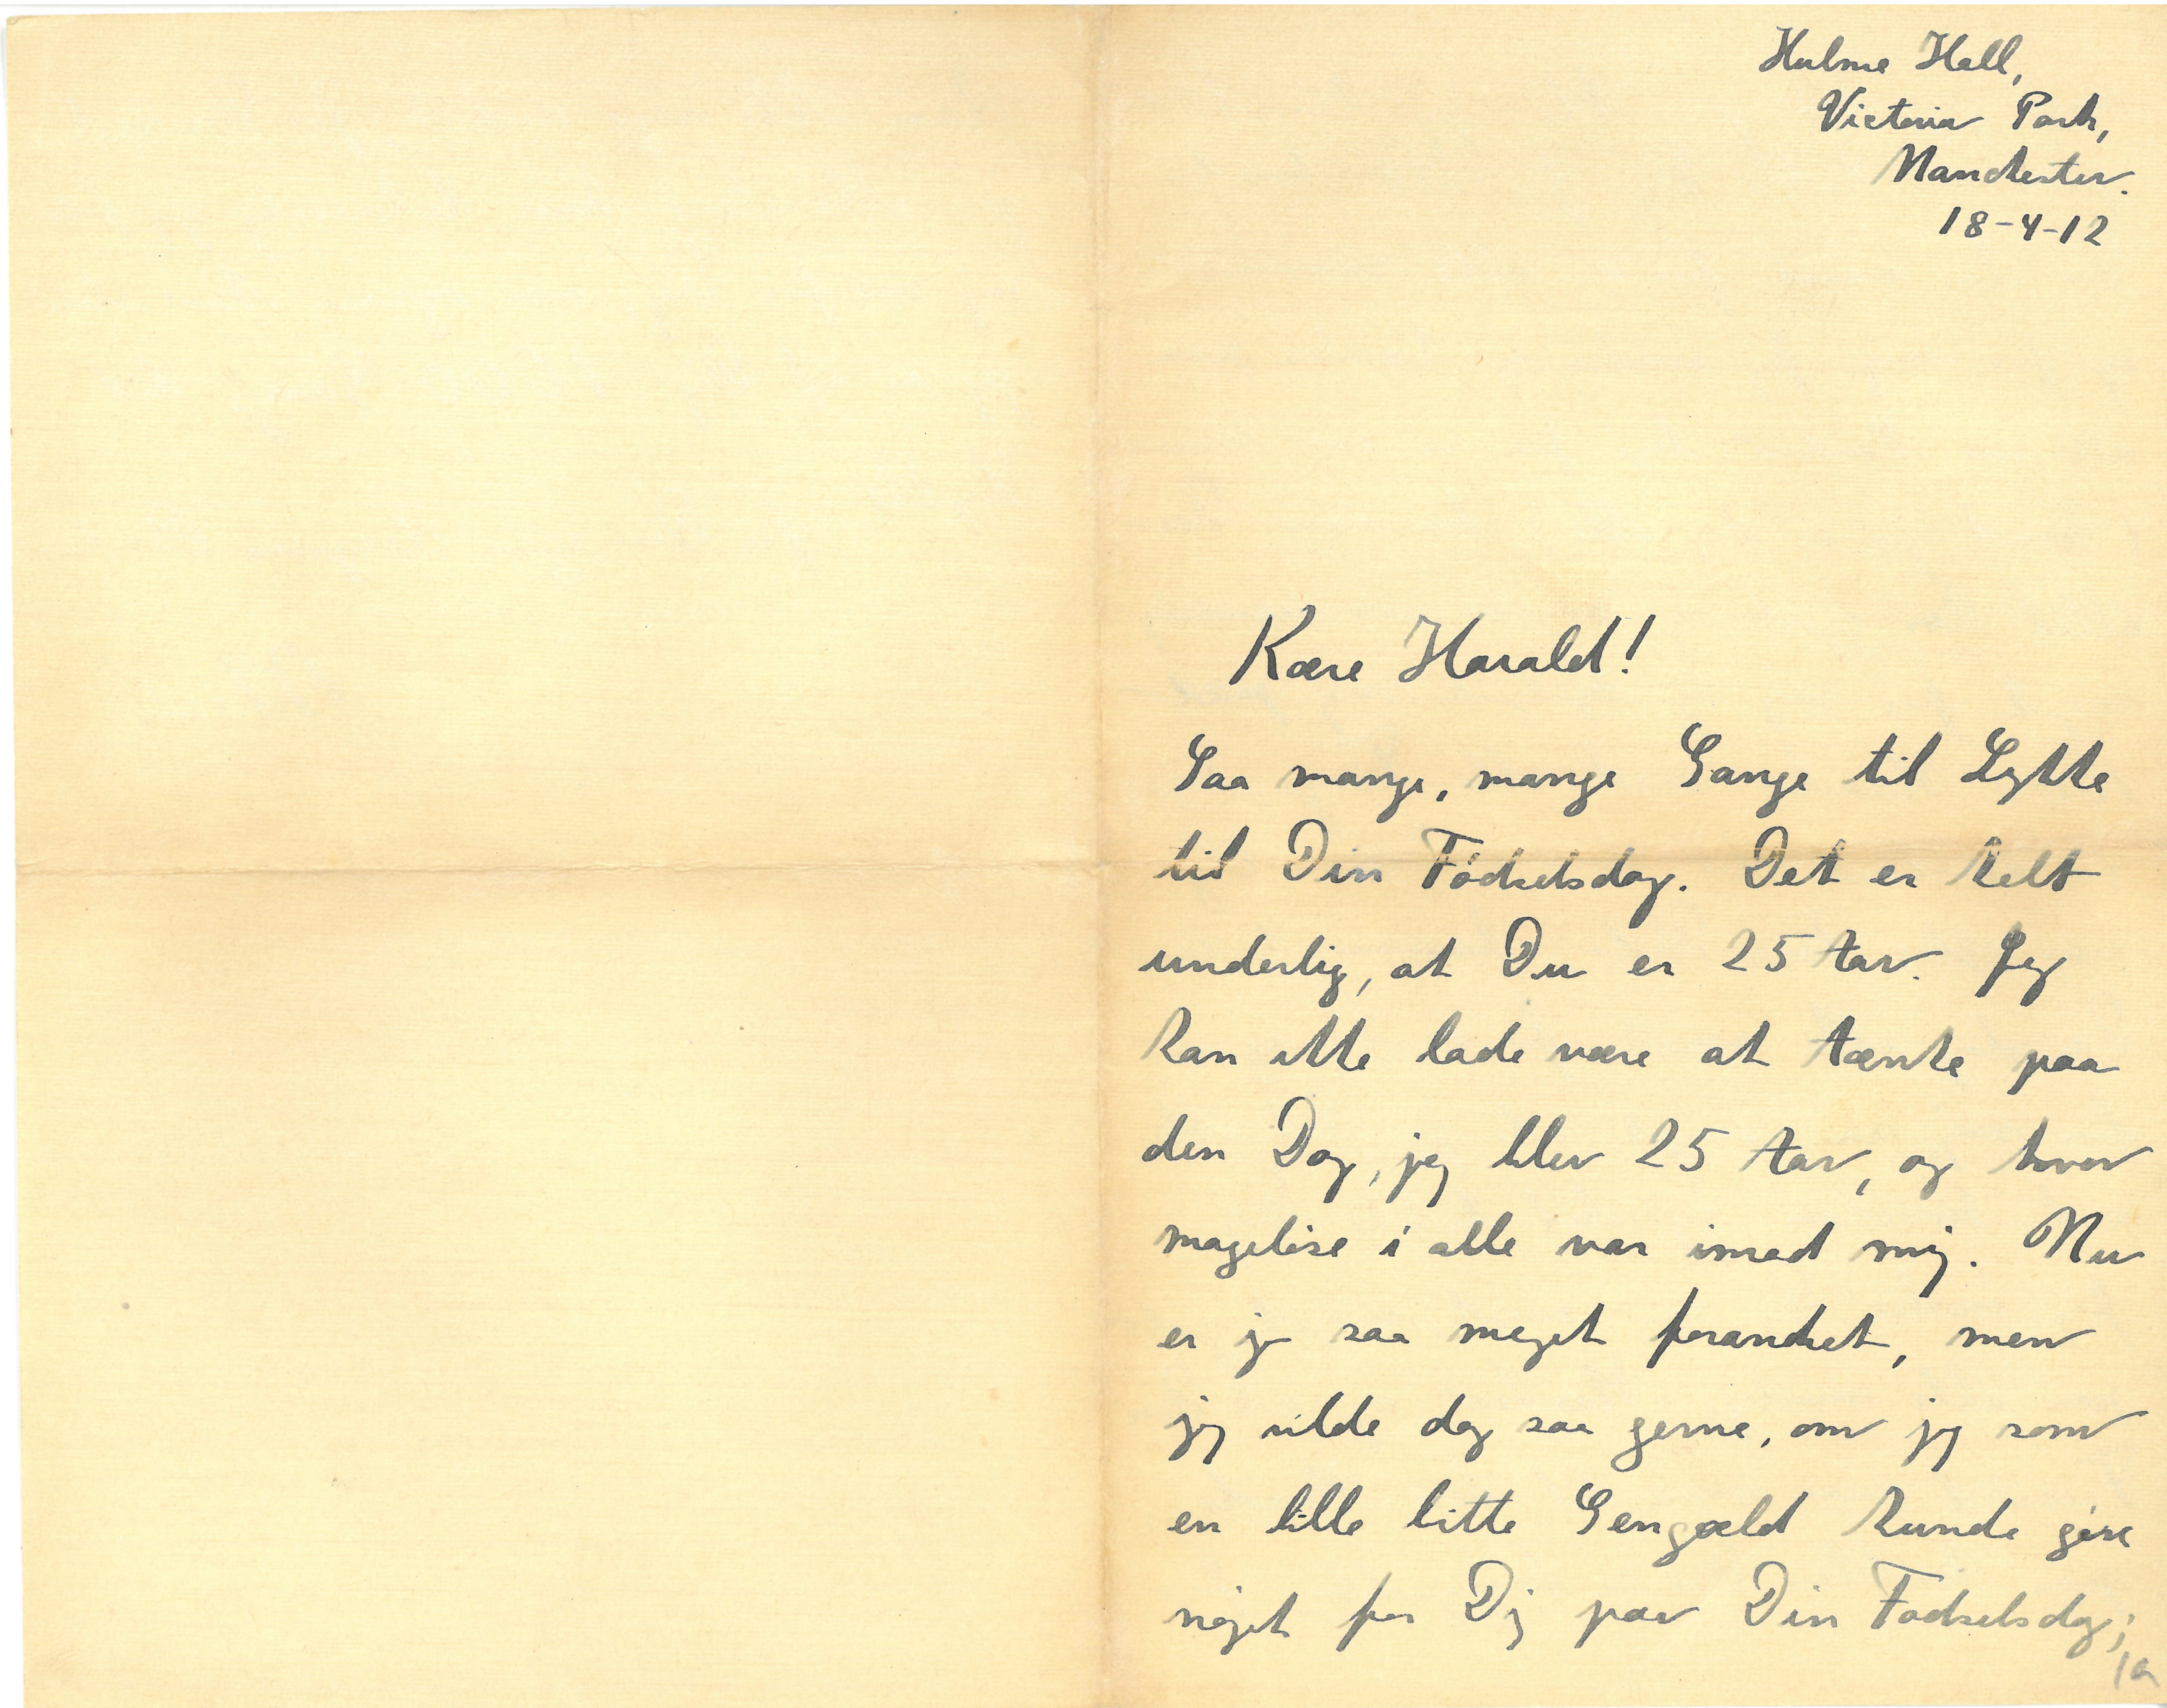 Hulme Hall,
Victoria Park,
Manchester.
18-4-12
Kære Harald!
Saa mange, mange Gange til Lykke
til Din Fødselsdag. Det er helt
underlig, at Du er 25 Aar. Jeg
kan ikke lade være at tænke paa
den Dag, jeg blev 25 Aar, og hvor
mageløse i alle var imod mig. Nu
er jo saa meget forandret, men
jeg vilde dog saa gerne, om jeg som
en lille bitte Gengæld kunde gøre
noget for Dig paa Din Fødselsdag;